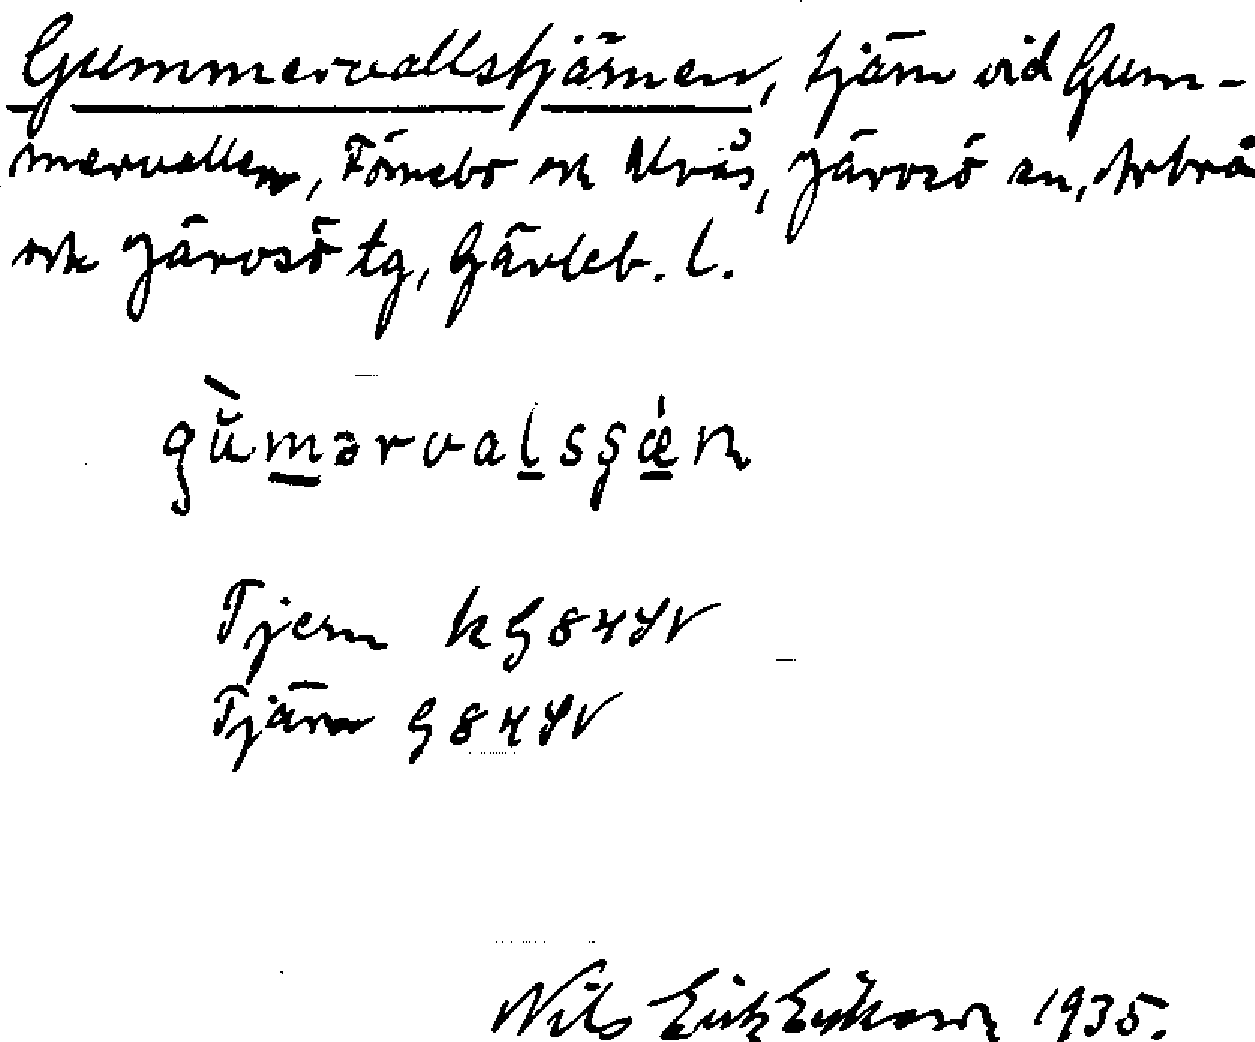 Gummervallstjärnen, tjärn vid Gum-
mervallen, Förnebo och Kvås, Järvsö sn, Arbrå
och Järvsö tg, Gävleb. l.
gùmərvalsşæ̀ɳ
Tjern kG84SV
Tjärn G84SV
Nils Erik Eriksson 1935.